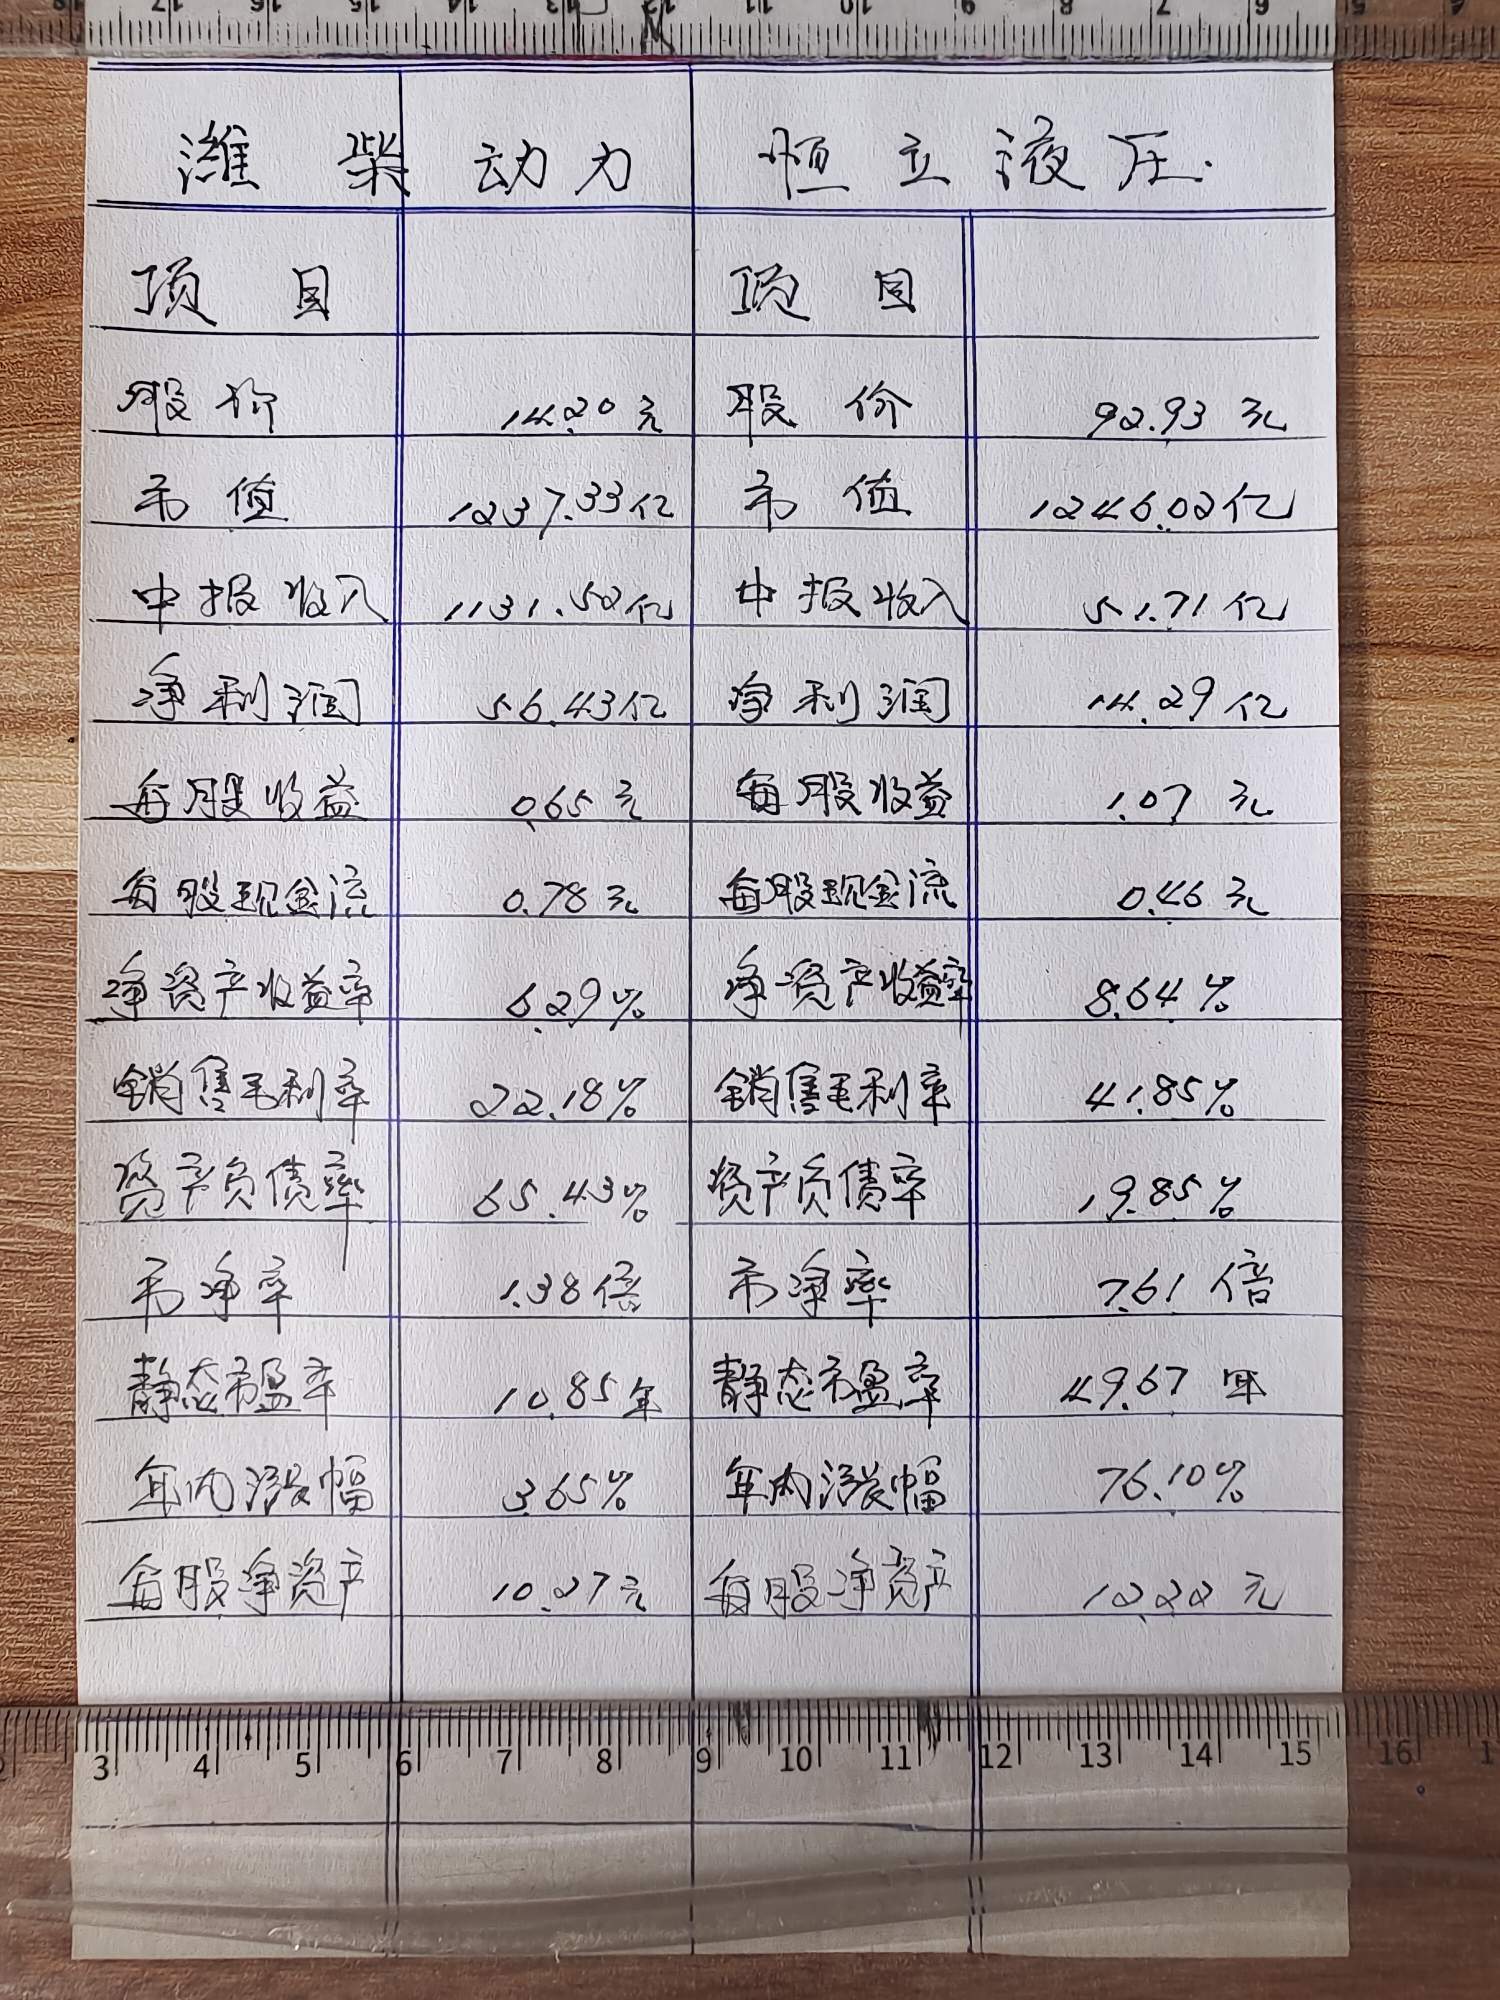 潍柴动力 恒立液压
项目 项目
股价 14.20元 股价 92.93元
市值 1237.33亿 市值 1246.02亿
中报收入 1131.52亿 中报收入 51.71亿
净利润 56.43亿 净利润 14.29亿
每股收益 0.65元 每股收益 1.07元
每股现金流 0.78元 每股现金流 0.46元
净资产收益率 6.29% 净资产收益率 8.64%
销售毛利率 22.18% 销售毛利率 41.85%
资产负债率 65.43% 资产负债率 19.85%
市净率 1.38倍 市净率 7.61倍
静态市盈率 10.85年 静态市盈率 49.67年
年内涨幅 3.65% 年内涨幅 76.10%
每股净资产 10.27元 每股净资产 12.22元
3 4 5 6 7 8 9 10 11 12 13 14 15 16